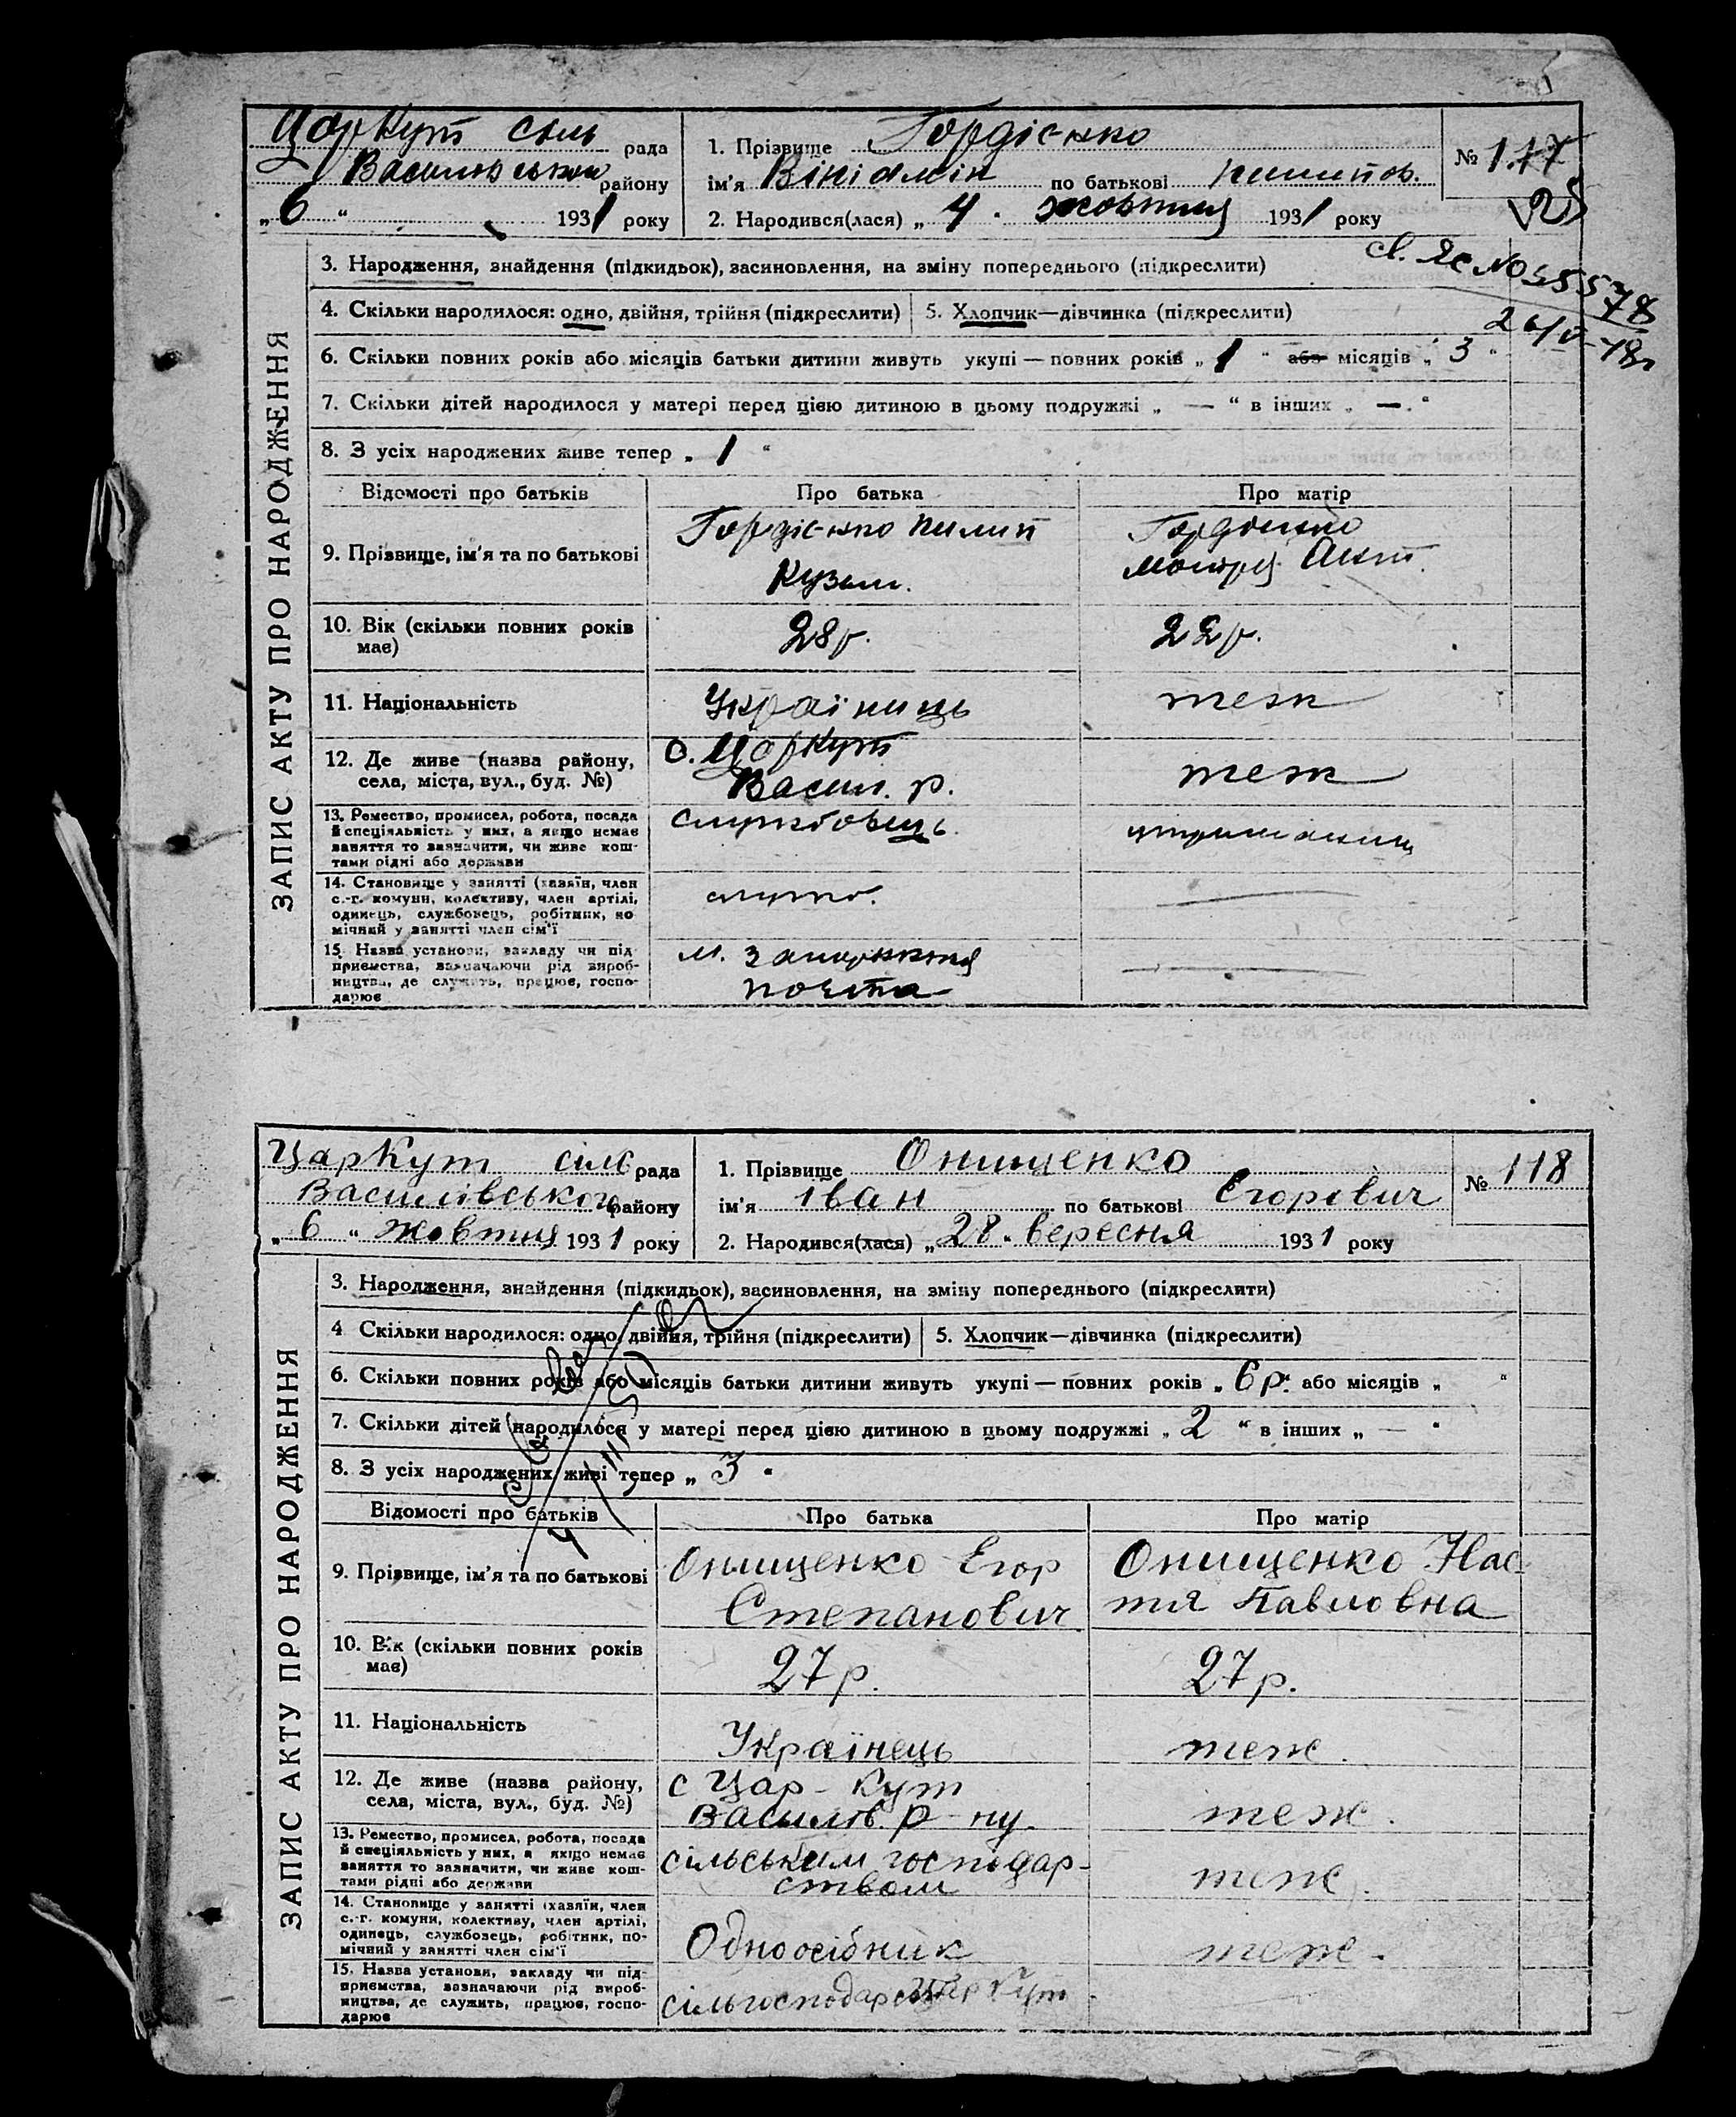 ЗАПИС АКТУ ПРО НАРОДЖЕННЯ
ЦарКут сіль рада
Василівського району
„6“ 1931 року
1. Прізвище Гордієнко
ім'я Вініамін по батькові Пилипов.
2. Народився(лася) „4. жовтня 1931 року
№ 117
св. ЯС № 055578
3. Народження, знайдення (підкидьок), засиновлення, на зміну попереднього (підкреслити)
4. Скільки народилося: одно, двійня, трійня (підкреслити)
5. Хлопчик—дівчинка (підкреслити)
6. Скільки повних років або місяців батьки дитини живуть укупі — повних років „1“ або місяців „3“
7. Скільки дітей народилося у матері перед цією дитиною в цьому подружжі „—“ в інших „—“
8. З усіх народжених живе тепер „1“
Відомості про батьків
Про батька
Про матір
9. Прізвище, ім'я та по батькові
Гордієнко Пилип
Кузьм.
Гордієнко
Мотря Ант.
10. Вік (скільки повних років
має)
28 р.
22 р.
11. Національність
Українець
теж
12. Де живе (назва району,
села, міста, вул., буд. №)
с. ЦарКут
Васил. р.
теж
13. Ремество, промисел, робота, посада
й спеціяльність у них, а якщо немає
заняття то зазначити, чи живе кош-
тами рідні або держави
службовець.
утриманиця
14. Становище у занятті (хазяїн, член
с.-г. комуни, колективу, член артілі,
одинець, службовець, робітник, по
мічний у занятті член сім'ї
служб.
15. Назва установи, закладу чи під
приємства, зазначаючи рід вироб-
ництва, де служить, працює, госпо-
дарює
м. Запоріжжя
почта
ЗАПИС АКТУ ПРО НАРОДЖЕННЯ
ЦарКут сіль рада
Василівського району
„6“ жовтня 1931 року
1. Прізвище Онищенко
ім'я Іван по батькові Єгорович
2. Народився(лася) „28“ вересня 1931 року
№ 118
3. Народження, знайдення (підкидьок), засиновлення, на зміну попереднього (підкреслити)
4 Скільки народилося: одно, двійня, трійня (підкреслити)
5. Хлопчик—дівчинка (підкреслити)
6. Скільки повних років або місяців батьки дитини живуть укупі — повних років „6 р.“ або місяців „ “
7. Скільки дітей народилося у матері перед цією дитиною в цьому подружжі „2“ в інших „—“
8. З усіх народжених живі тепер „3“
Відомості про батьків
Про батька
Про матір
9. Прізвище, ім'я та по батькові
Онищенко Єгор
Степанович
Онищенко Нас-
тя Павловна
10. Вік (скільки повних років
має)
27 р.
27 р.
11. Національність
Українець
теж.
12. Де живе (назва району,
села, міста, вул., буд. №)
с Цар-Кут
Василів. р-ну.
теж.
13. Ремество, промисел, робота, посада
й спеціяльність у них, а якщо немає
заняття то зазначити, чи живе кош-
тами рідні або держави
сільським господар-
ством
теж.
14. Становище у занятті (хазяїн, член
с.-г. комуни, колективу, член артілі,
одинець, службовець, робітник, по-
мічний у занятті член сім'ї
Одноосібник
теж.
15. Назва установи, закладу чи під-
приємства, зазначаючи рід вироб-
ництва, де служить, працює, госпо-
дарює